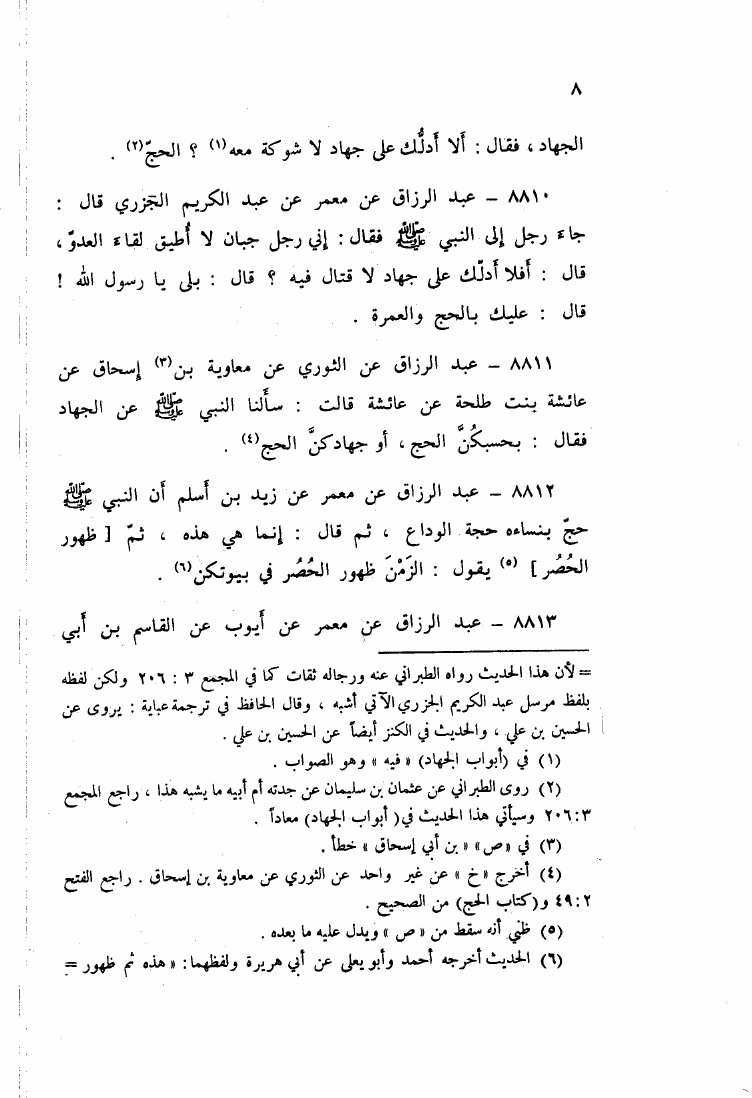 ٨
الجهاد ، فقال : أَلا أَدلُّك على جهاد لا شوكة معه(١) ؟ الحجّ(٢) .
٨٨١٠ – عبد الرزاق عن معمر عن عبد الكريم الجَزري قال :
جاءَ رجل إلى النبي ﷺ فقال : إني رجل جبان لا أُطيق لقاءَ العدوّ ،
قال : أَفلا أَدلّك على جهاد لا قتال فيه ؟ قال : بلى يا رسول الله !
قال : عليك بالحج والعمرة .
٨٨١١ – عبد الرزاق عن الثوري عن معاوية بن(٣) إسحاق عن
عائشة بنت طلحة عن عائشة قالت : سأَلنا النبي ﷺ عن الجهاد
فقال : بحسبكُنَّ الحج ، أو جهادكنَّ الحج(٤) .
٨٨١٢ – عبد الرزاق عن معمر عن زيد بن أَسلم أن النبي ﷺ
حجّ بنساءه حجة الوداع ، ثم قال : إنما هي هذه ، ثمّ [ ظهور
الحُصُر ] (٥) يقول : الزَمْنَ ظهور الحُصُر في بيوتكن(٦) .
٨٨١٣ – عبد الرزاق عن معمر عن أيوب عن القاسم بن أَبي
= لأن هذا الحديث رواه الطبراني عنه ورجاله ثقات كما في المجمع ٣ : ٢٠٦ ولكن لفظه
بلفظ مرسل عبد الكريم الجزري الآتي أشبه ، وقال الحافظ في ترجمة عباية : يروى عن
الحسين بن علي ، والحديث في الكنز أيضاً عن الحسين بن علي .
(١) في (أبواب الجهاد) « فيه » وهو الصواب .
(٢) روى الطبراني عن عثمان بن سليمان عن جدته أم أبيه ما يشبه هذا ، راجع المجمع
٣:٢٠٦ وسيأتي هذا الحديث في( أبواب الجهاد) معاداً .
(٣) في « ص » « بن أبي إسحاق » خطأ .
(٤) أخرج « خ » عن غير واحد عن الثوري عن معاوية بن إسحاق . راجع الفتح
٤٩:٢ و(كتاب الحج) من الصحيح .
(٥) ظني أنه سقط من « ص » ويدل عليه ما بعده .
(٦) الحديث أخرجه أحمد وأبو يعلى عن أبي هريرة ولفظهما : « هذه ثم ظهور =